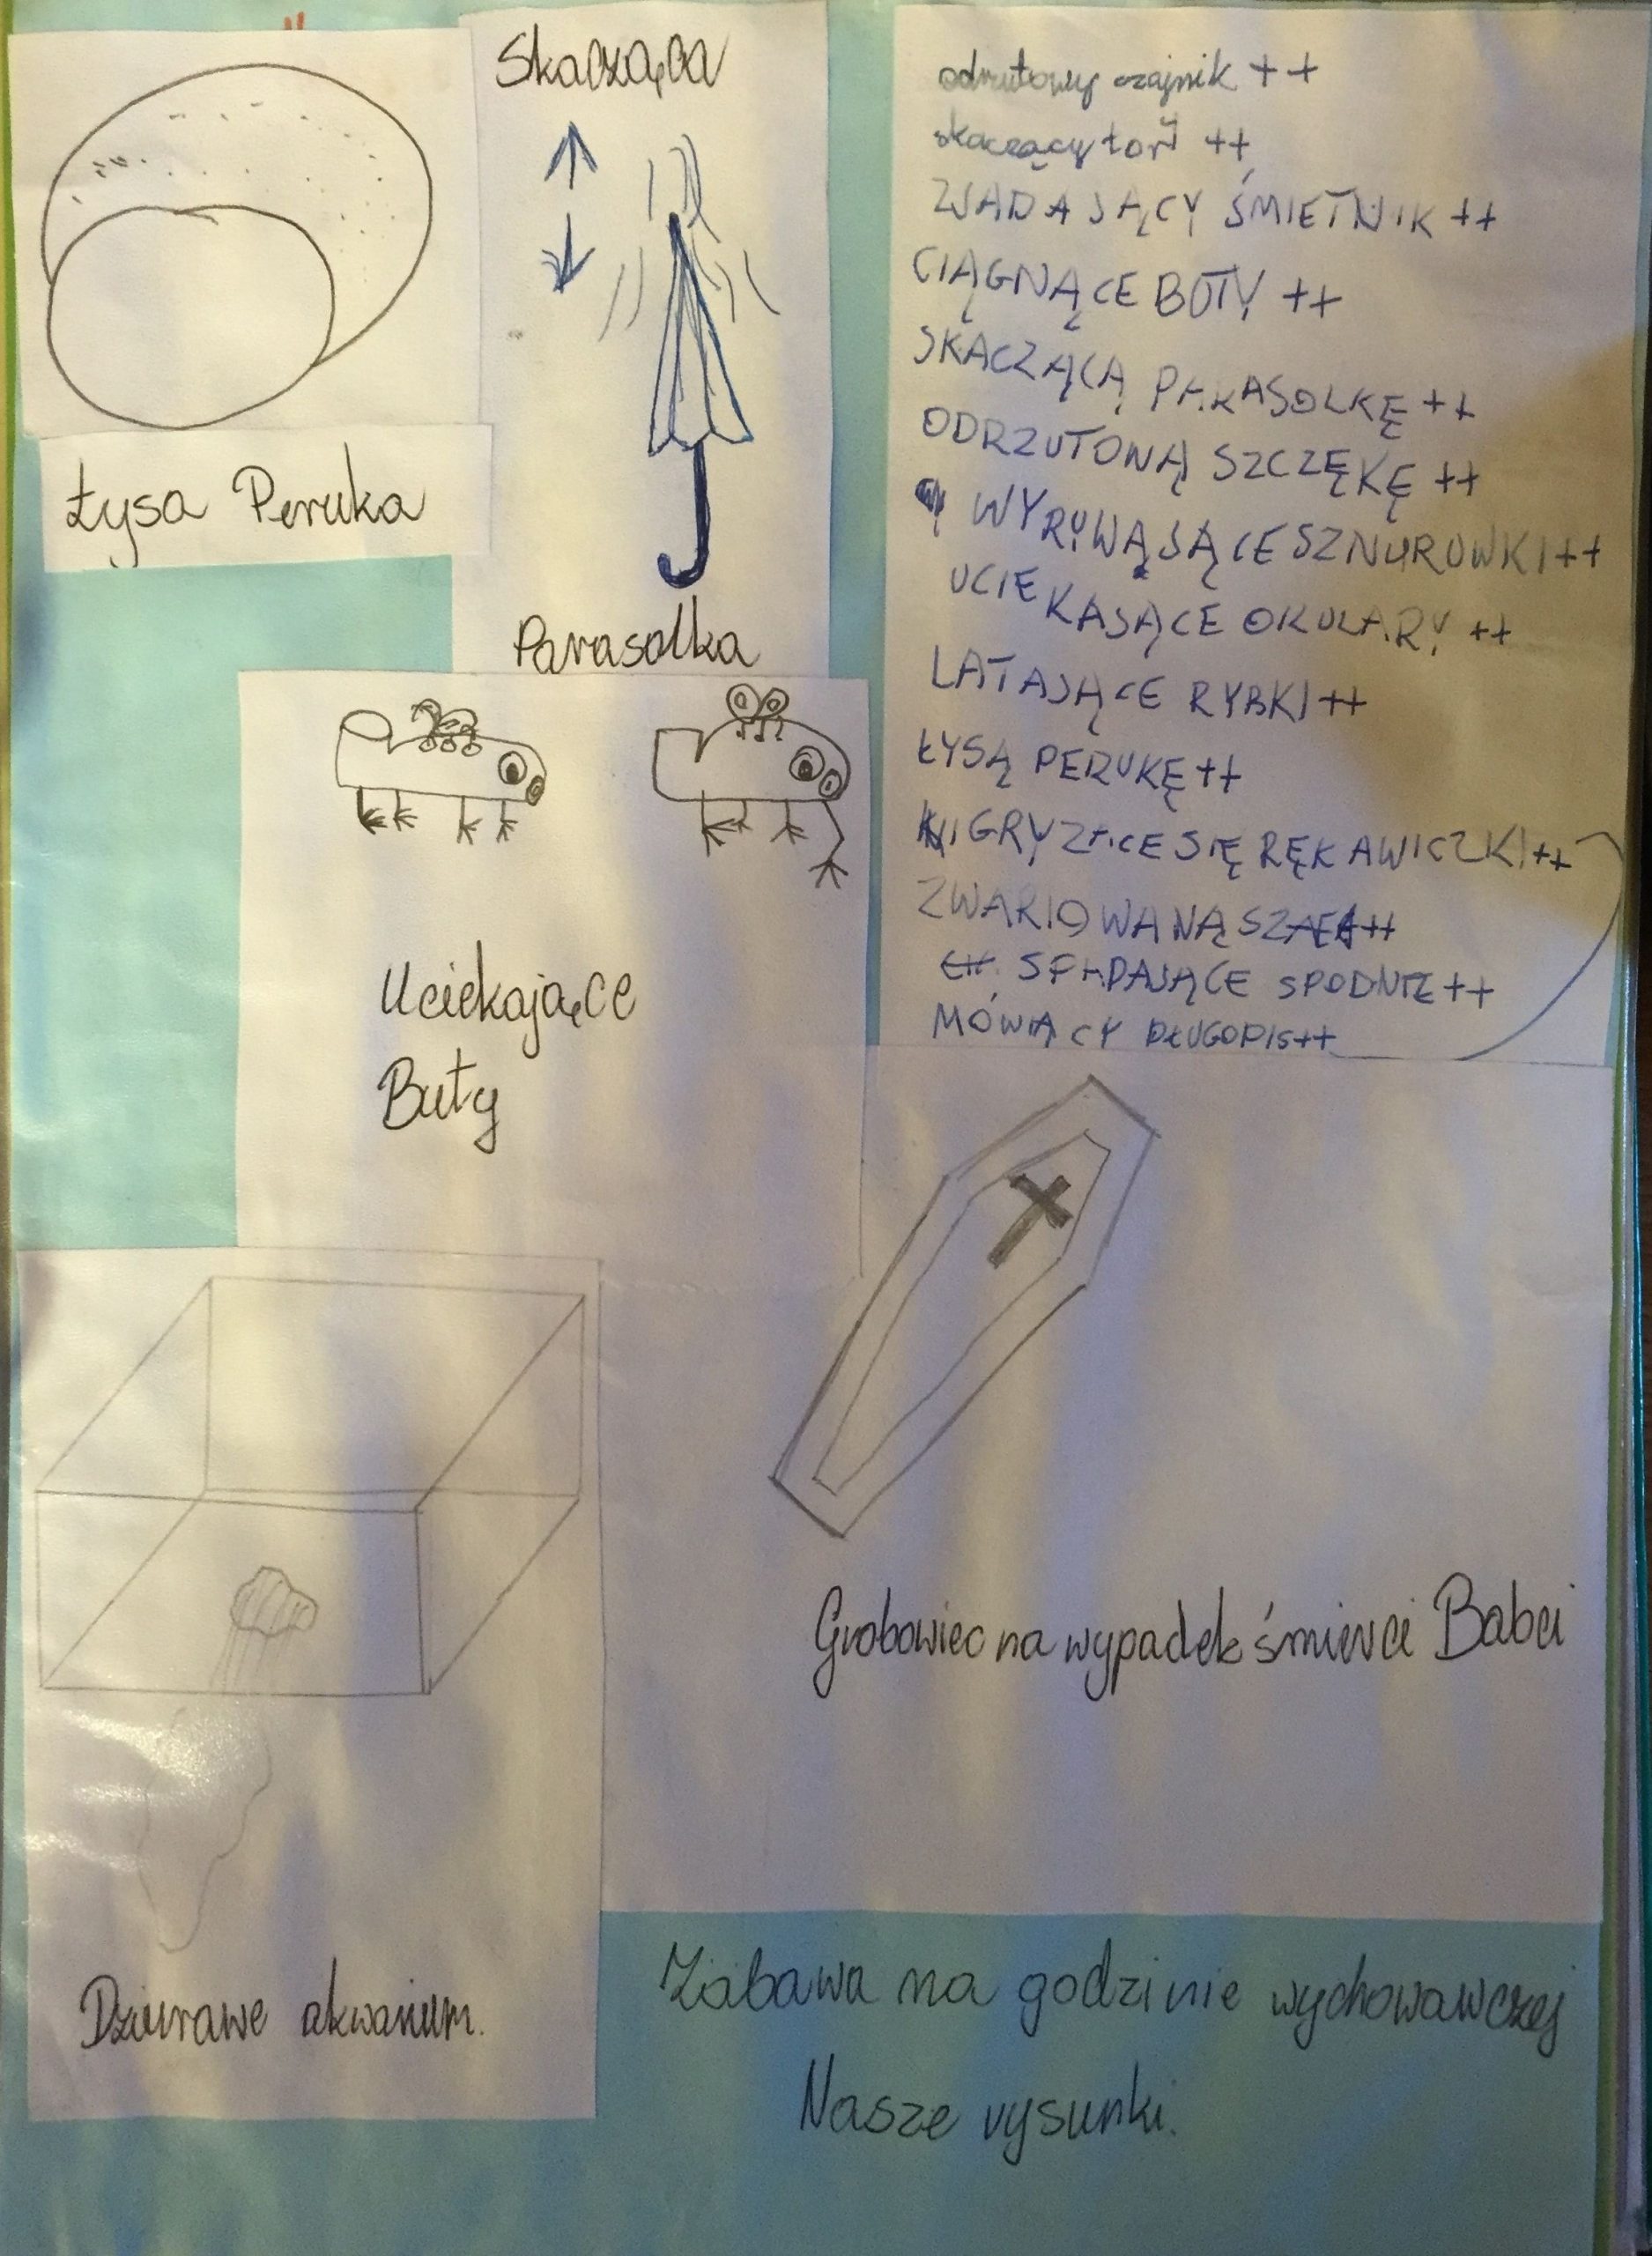 Skacząca
Łysa Peruka
Parasolka
Uciekające
Buty
odrzutowy czajnik ++
skaczący tort ++
ZJADAJĄCY ŚMIETNIK ++
CIĄGNĄCE BUTY ++
SKACZĄCĄ PARASOLKĘ ++
ODRZUTONĄ SZCZĘKĘ ++
WYRYWAJĄCE SZNUROWKI ++
UCIEKAJĄCE OKULARY ++
LATAJĄCE RYBKI ++
ŁYSĄ PERUKĘ ++
GRYZĄCE SIĘ RĘKAWICZKI ++
ZWARIOWANĄ ++
SPADAJĄCE SPODNIE ++
MÓWIĄCY DŁUGOPIS ++
Grobowiec na wypadek śmierci Babci
Dziurawe akwarium.
Zabawa na godzinie wychowawczej
Nasze rysunki.